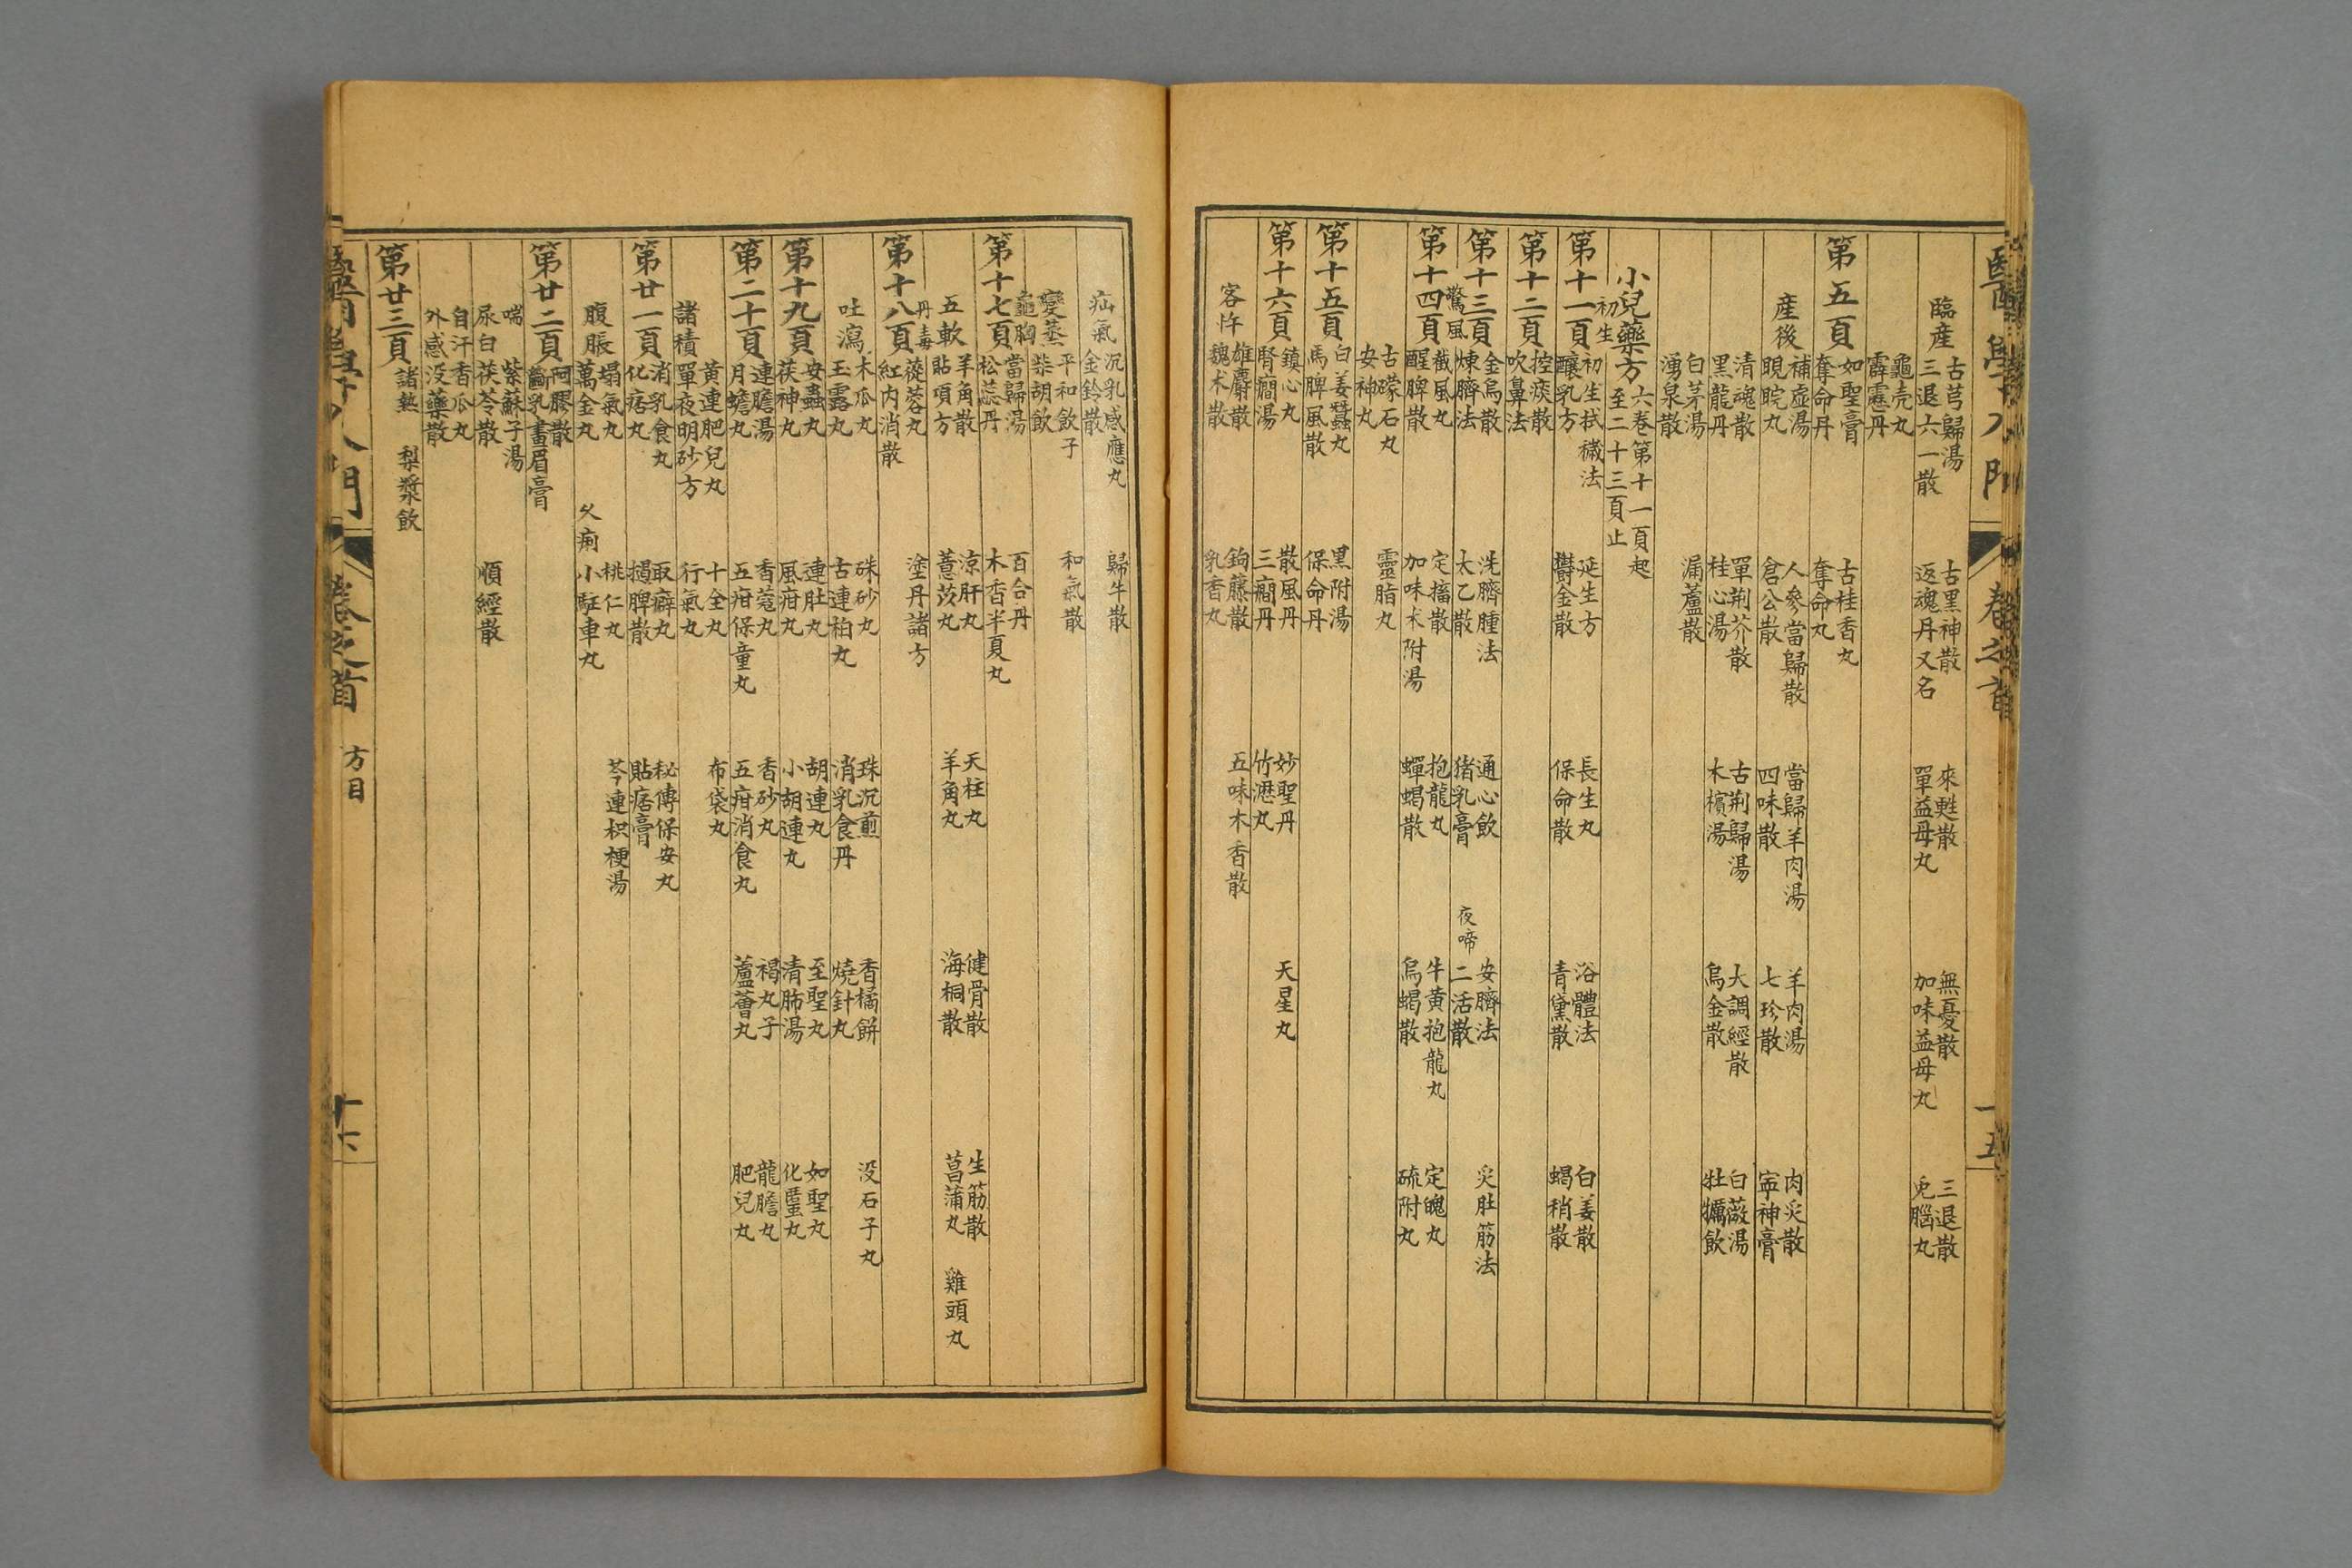 醫學入門 卷之首 十五
臨產 古芎歸湯 古黑神散 來甦散 無憂散 三退散
三退六一散 返魂丹又名 單益母丸 加味益母丸 兎腦丸
龜壳丸
霹靂丹
第五頁 如聖膏 古桂香丸
奪命丹 奪命丸
產後 補虛湯 人參當歸散 當歸羊肉湯 羊肉湯 肉炙散
睍睆丸 倉公散 四味散 七珍散 寧神膏
清魂散 單荆芥散 古荆歸湯 大調經散 白薇湯
黑龍丹 桂心湯 木檳湯 烏金散 牡犡飲
白茅湯 漏蘆散
湧泉散
小兒藥方 六卷第十一頁起
至二十三頁止
初生
第十一頁 初生拭穢法 延生方 長生丸 浴體法 白姜散
釀乳方 鬱金散 保命散 青黛散 蝎稍散
第十二頁 控痰散
吹鼻法
第十三頁 金烏散 洗臍腫法 通心飲 夜啼 安臍法 炙肚筋法
煉臍法 太乙散 猪乳膏 二活散
驚風
第十四頁 截風丸 定搐散 抱龍丸 牛黃抱龍丸 定魄丸
醒脾散 加味朮附湯 蟬蝎散 烏蝎散 硫附丸
古礞石丸 靈脂丸
安神丸
第十五頁 白姜蠶丸 黑附湯
馬脾風散 保命丹
第十六頁 鎮心丸 散風丹 妙聖丹 天星丸
腎癎湯 三癎丹 竹瀝丸
客忤 雄麝散 鈎藤散 五味木香散
魏朮散 乳香丸
疝氣 沉乳感應丸 歸牛散
金鈴散
變蒸 平和飲子 和氣散
柴胡飲
龜胸
第十七頁 當歸湯 百合丹
松蕊丹 木香半夏丸
五軟 羊角散 涼肝丸 天柱丸 健骨散 生筋散 雞頭丸
貼項方 薏苡丸 羊角丸 海桐散 菖蒲丸
丹毒
第十八頁 蓯蓉丸 塗丹諸方
紅內消散
吐瀉 木瓜丸 硃砂丸 珠沉煎 香橘餅 没石子丸
玉露丸 古連柏丸 消乳食丹 燒針丸
第十九頁 安蟲丸 連肚丸 胡連丸 至聖丸 如聖丸
茯神丸 風疳丸 小胡連丸 清肺湯 化䘌丸
第二十頁 連膽湯 香蔻丸 香砂丸 褐丸子 龍膽丸
月蟾丸 五疳保童丸 五疳消食丸 蘆薈丸 肥兒丸
諸積 黃連肥兒丸 十全丸 布袋丸
單夜明砂方 行氣丸
第廿一頁 消乳食丸 取癖丸 秘傳保安丸
化痞丸 搵脾散 貼痞膏
腹脹 塌氣丸 桃仁丸 芩連枳梗湯
萬金丸 久痢 小駐車丸
第廿二頁 阿膠散
斷乳畫眉膏
喘 紫蘇子湯
尿白 茯苓散 順經散
自汗 香瓜丸
外感 没藥散
第廿三頁 諸熱 梨漿飲
醫學入門 卷之首 方目 十六